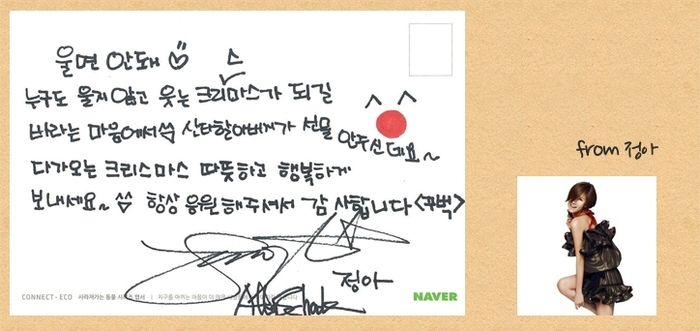 울면 안돼
누구도 울지 않고 웃는 크리스마스가 되길
바라는 마음에서쓰 산타할아버지가 선물 안주신데요~
다가오는 크리스마스 따뜻하고 행복하게
보내세요~ 쓰 항상 응원해주셔서 감사합니다 <꾸벅>
정아
After School
CONNECT - ECO 사라져가는 동물 시리즈 엽서 |
NAVER
from 정아